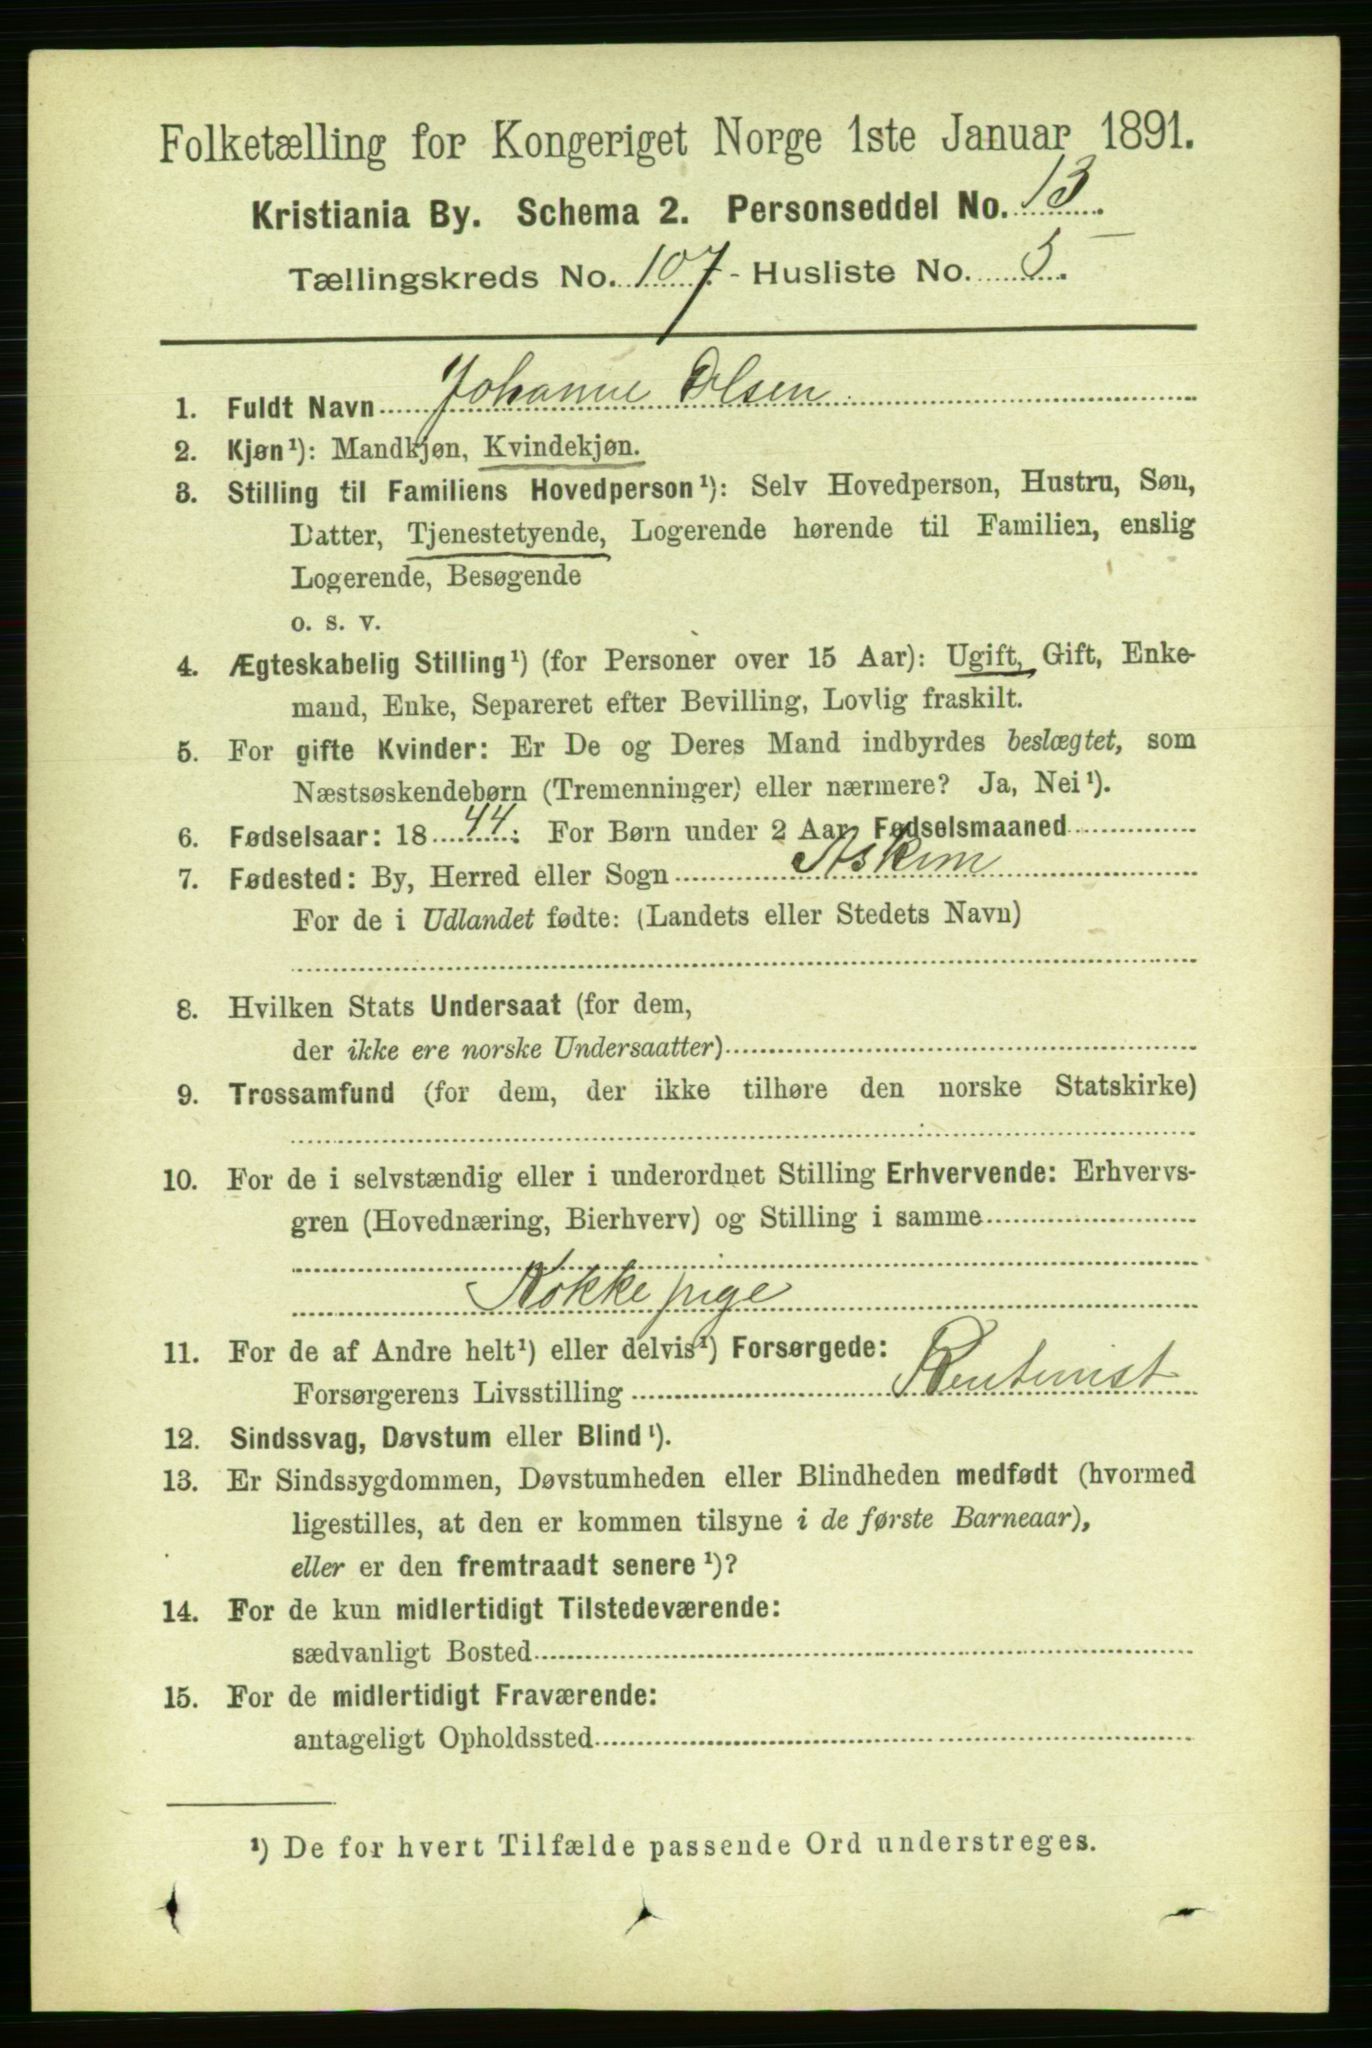 Folketælling for Kongeriget Norge 1ste Januar 1891.
Kristiania By. Schema 2. Personseddel No. 13.
Tællingskreds No. 107 - Husliste No. 5.
1. Fuldt Navn Johanne Olsen
2. Kjøn¹): Mandkjøn, Kvindekjøn.
3. Stilling til Familiens Hovedperson¹): Selv Hovedperson, Hustru, Søn,
Datter, Tjenestetyende, Logerende hørende til Familien, enslig
Logerende, Besøgende
o. s. v.
4. Ægteskabelig Stilling¹) (for Personer over 15 Aar): Ugift, Gift, Enke-
mand, Enke, Separeret efter Bevilling, Lovlig fraskilt.
5. For gifte Kvinder: Er De og Deres Mand indbyrdes beslægtet, som
Næstsøskendebørn (Tremenninger) eller nærmere? Ja, Nei¹).
6. Fødselsaar: 1844. For Børn under 2 Aar Fødselsmaaned
7. Fødested: By, Herred eller Sogn Askim
For de i Udlandet fødte: (Landets eller Stedets Navn)
8. Hvilken Stats Undersaat (for dem,
der ikke ere norske Undersaatter)
9. Trossamfund (for dem, der ikke tilhøre den norske Statskirke)
10. For de i selvstændig eller i underordnet Stilling Erhvervende: Erhvervs-
gren (Hovednæring, Bierhverv) og Stilling i samme
Kokkepige
11. For de af Andre helt¹) eller delvis¹) Forsørgede:
Forsørgerens Livsstilling Rentenist
12. Sindssvag, Døvstum eller Blind¹).
13. Er Sindssygdommen, Døvstumheden eller Blindheden medfødt (hvormed
ligestilles, at den er kommen tilsyne i de første Barneaar),
eller er den fremtraadt senere¹)?
14. For de kun midlertidigt Tilstedeværende:
sædvanligt Bosted
15. For de midlertidigt Fraværende:
antageligt Opholdssted
¹) De for hvert Tilfælde passende Ord understreges.